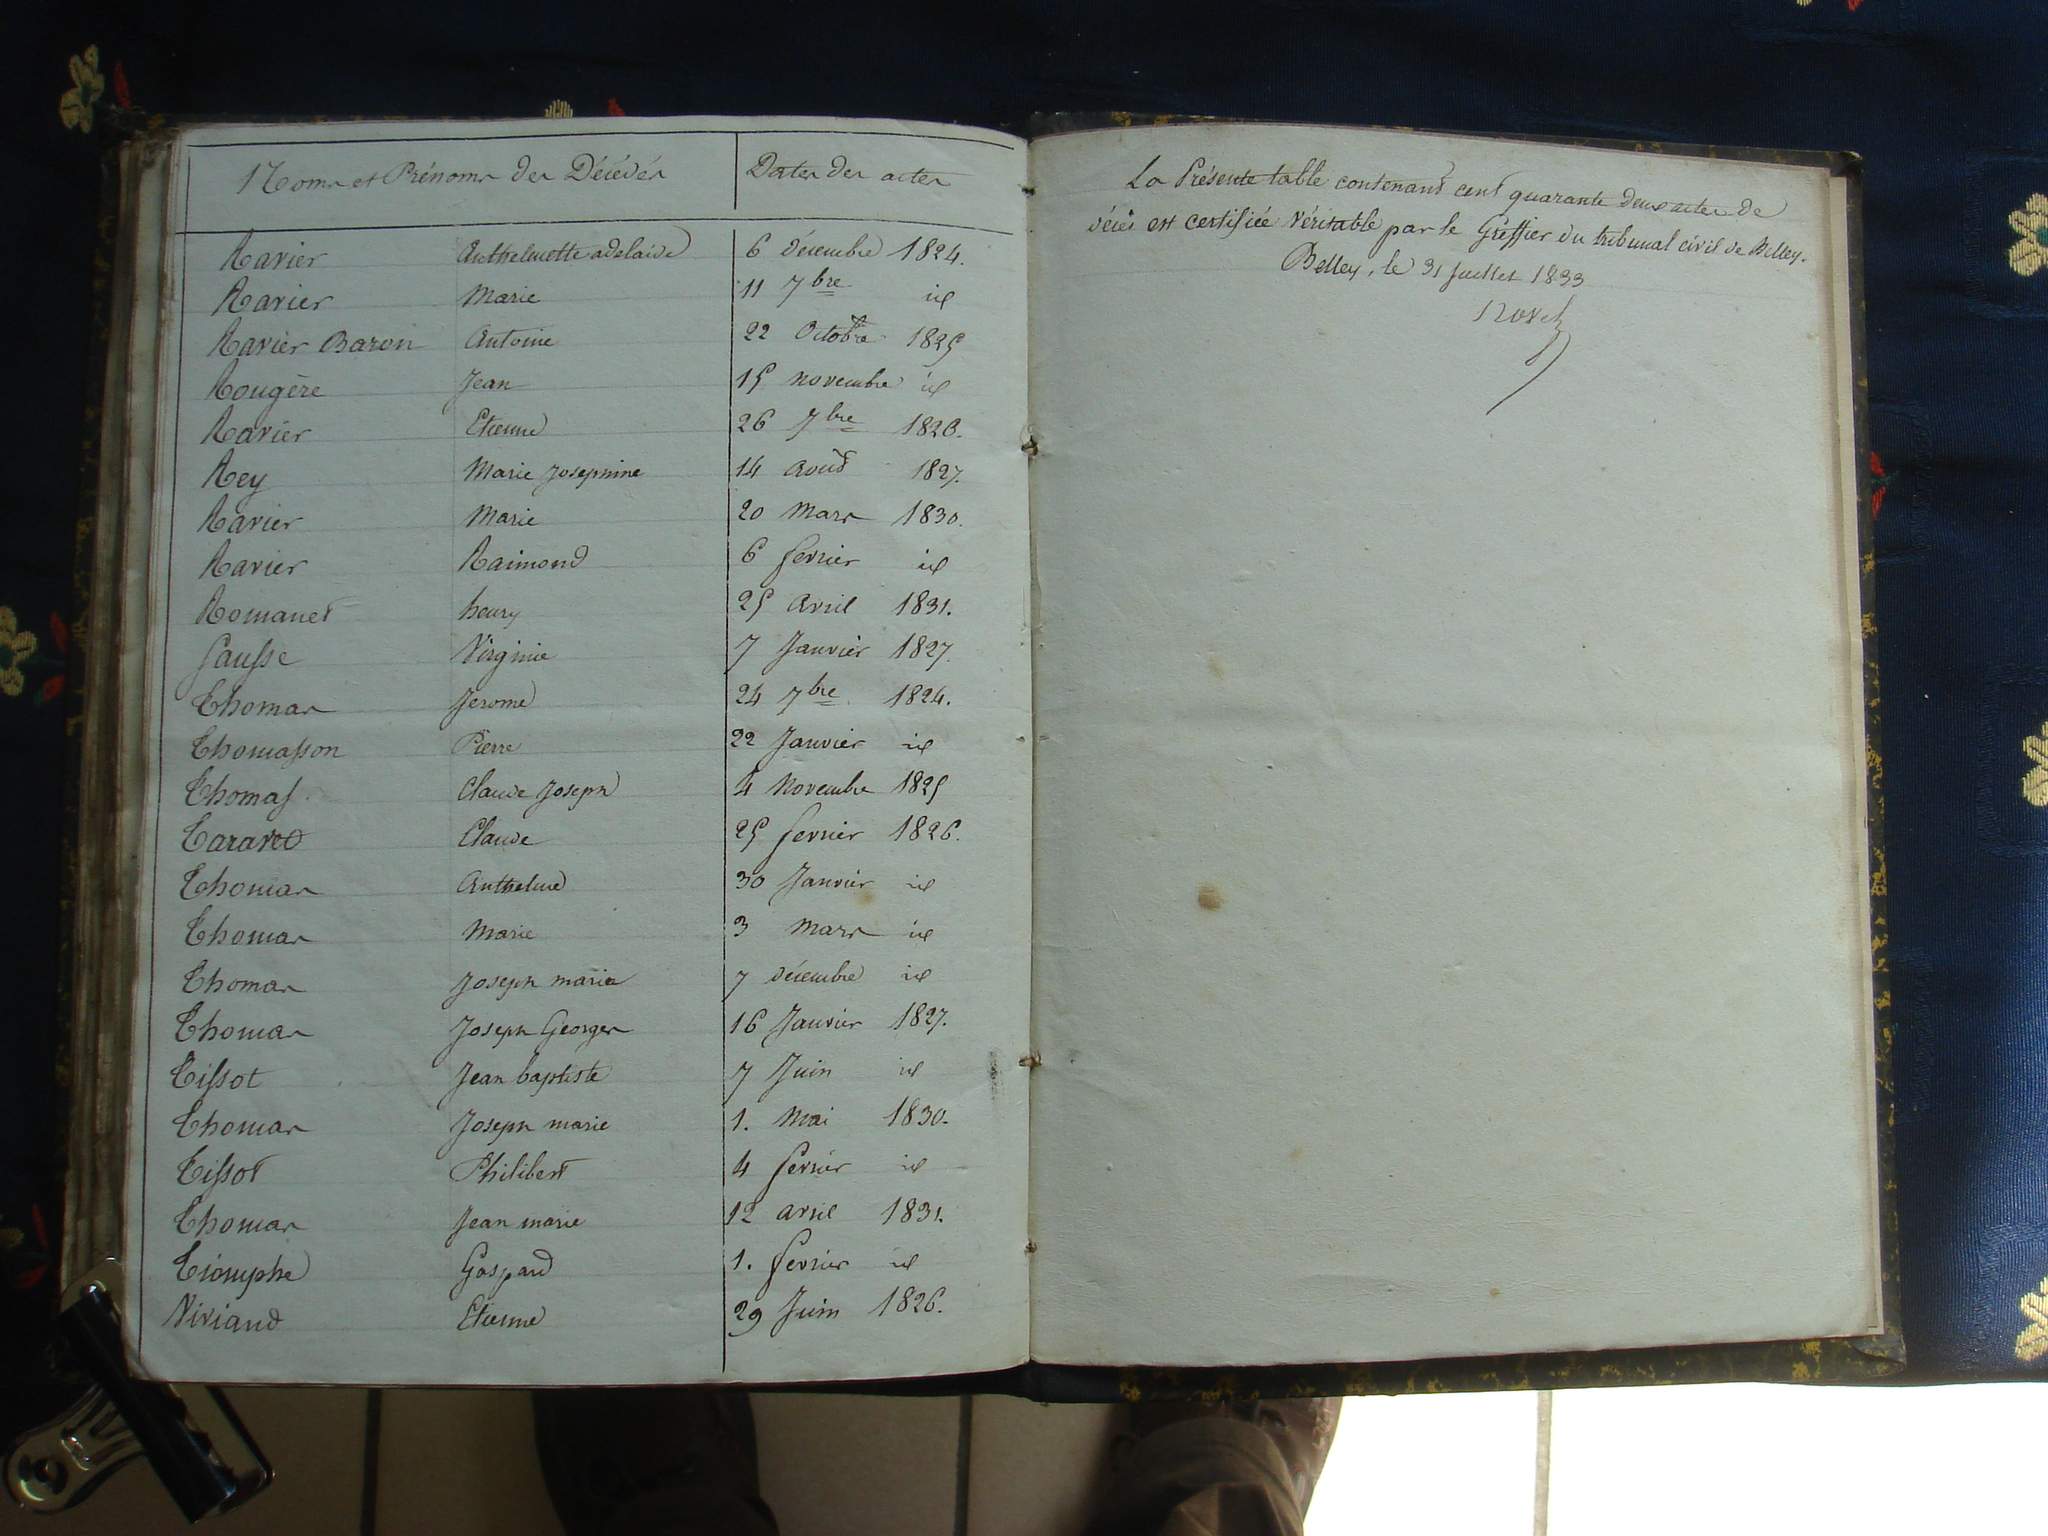 Noms et Prénoms des Décédés Dates des actes
Ravier Anthelmette adelaïde 6 décembre 1824.
Ravier Marie 11 7bre id
Ravier Baron Antoine 22 Octobre 1825
Rougère Jean 15 novembre id
Ravier Etienne 26 7bre 1826.
Rey Marie Josephine 14 Août 1827.
Ravier Marie 20 Mars 1830.
Ravier Raimond 6 fevrier id
Romanet henry 25 Avril 1831.
Sausse Virginie 7 Janvier 1827.
Thomas Jerome 24 7bre 1824.
Thomasson Pierre 22 Janvier id
Thomas Claude Joseph 4 Novembre 1825
Taravet Claude 25 fevrier 1826.
Thomas Anthelme 30 Janvier id
Thomas Marie 3 Mars id
Thomas Joseph marie 7 décembre id
Thomas Joseph Georges 16 Janvier 1827.
Tissot Jean baptiste 7 Juin id
Thomas Joseph marie 1. Mai 1830.
Tissot Philibert 4 fevrier id
Thomas Jean marie 12 avril 1831.
Triomphe Gaspard 1. fevrier id
Viviand Etienne 29 Juin 1826.
La Présente table contenant cent quarante deux actes de
décès est certifiée Véritable par le Gréffier du tribunal civil de Belley.
Belley, le 31 Juillet 1833